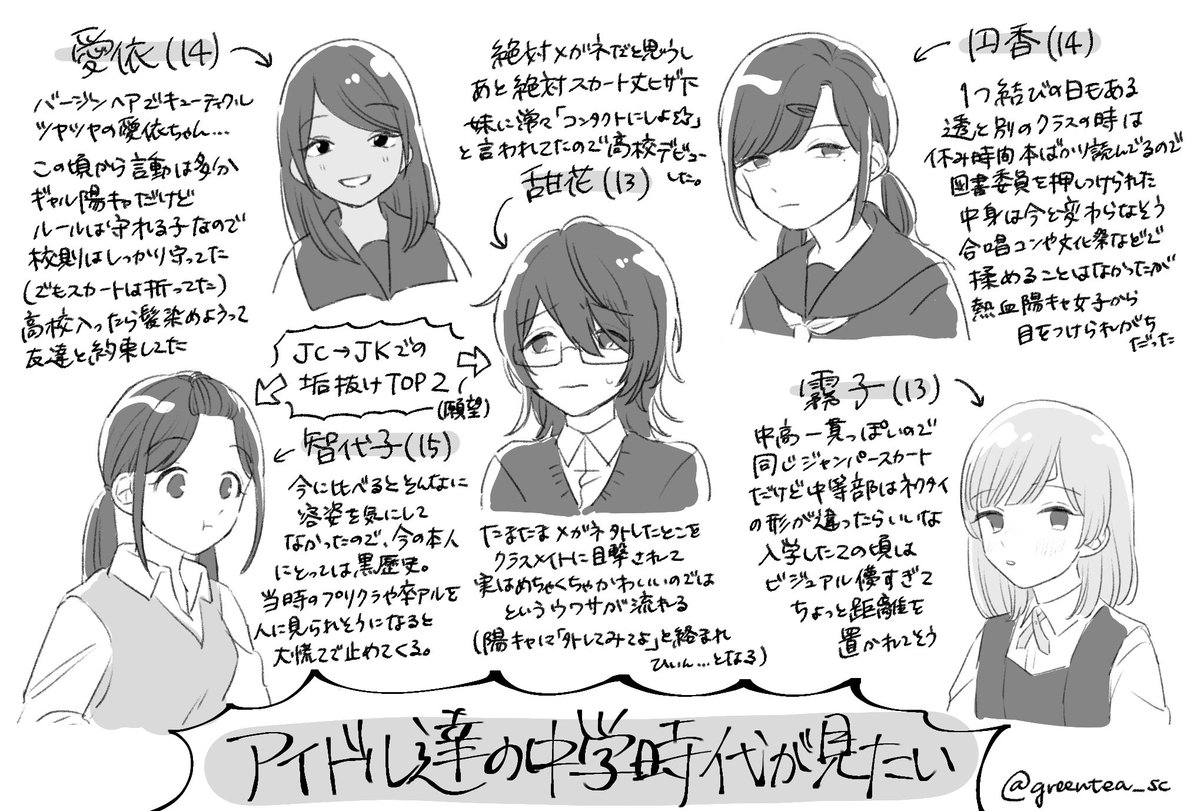 愛依(14)
バージンヘアでキューティクル
ツヤツヤの愛依ちゃん…
この頃から言動は多分
ギャル陽キャだけど
ルールは守れる子なので
校則はしっかり守ってた
(でもスカートは折ってた)
高校入ったら髪染めようって
友達と約束してた
絶対メガネだと思うし
あと絶対スカート丈ヒザ下
妹に常々「コンタクトにしよ☆」
と言われてたので高校デビュー
した。
甜花(13)
円香(14)
1つ結びの日もある
透と別のクラスの時は
休み時間本ばかり読んでるので
図書委員を押しつけられた
中身は今と変わらなそう
合唱コンや文化祭などで
揉めることはなかったが
熱血陽キャ女子から
目をつけられがち
だった
JC→JKでの
垢抜けTOP2
(願望)
智代子(15)
今に比べるとそんなに
容姿を気にして
なかったので、今の本人
にとっては黒歴史。
当時のプリクラや卒アルを
人に見られそうになると
大慌てで止めてくる。
たまたまメガネ外したとこを
クラスメイトに目撃されて
実はめちゃくちゃかわいいのでは
というウワサが流れる
(陽キャに「外してみてよ」と絡まれ
ひぃん…となる)
霧子(13)
中高一貫っぽいので
同じジャンパースカート
だけど中等部はネクタイ
の形が違ったらいいな
入学したての頃は
ビジュアル儚すぎて
ちょっと距離を
置かれてそう
アイドル達の中学時代が見たい
@greentea_sc